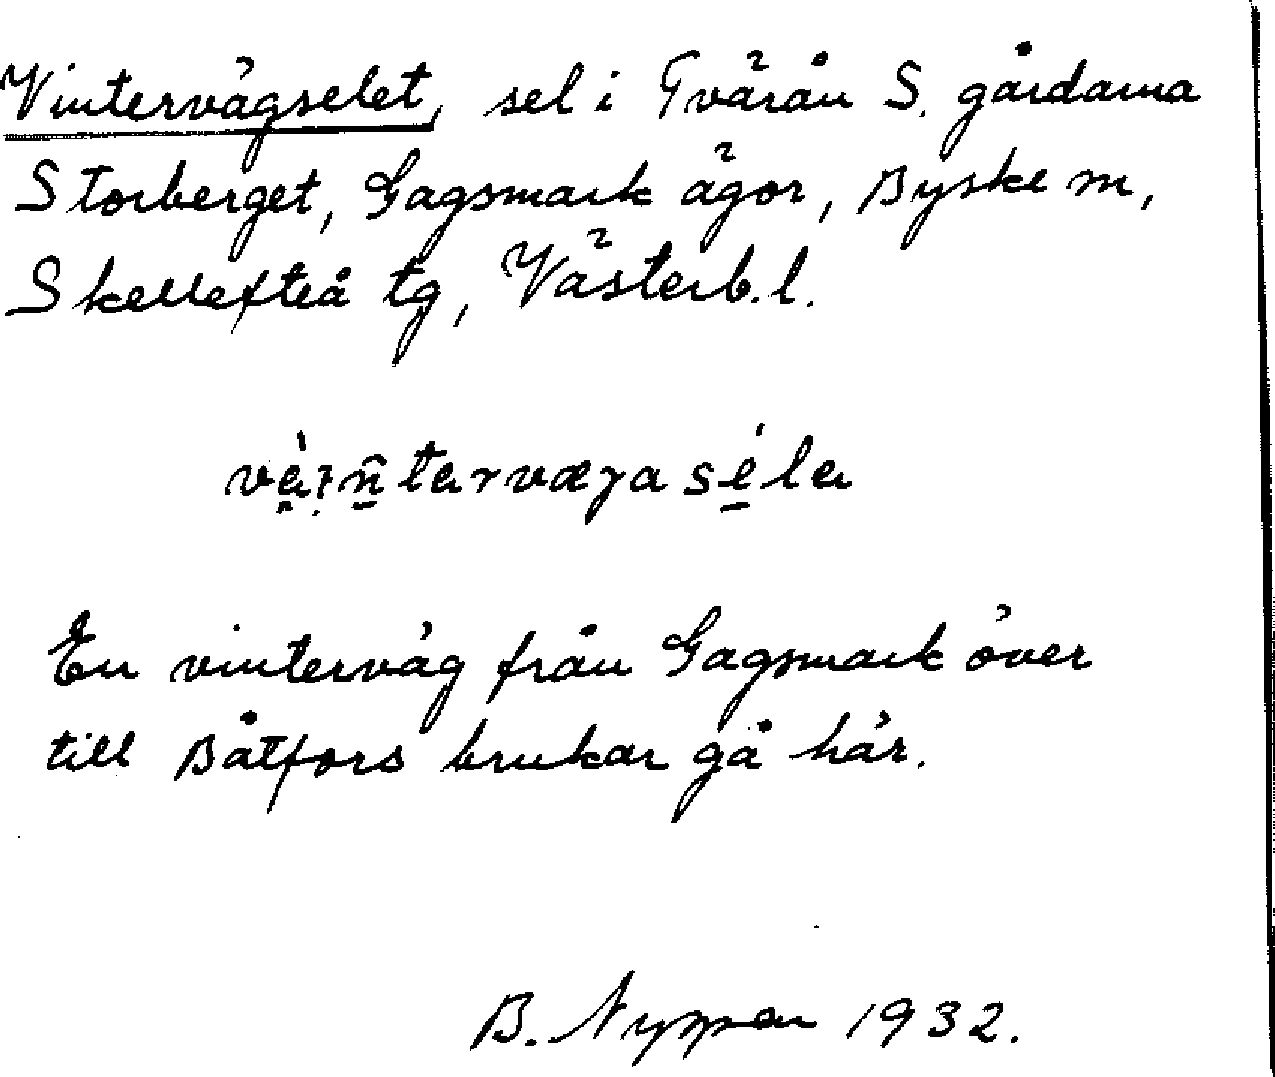 Vintervägselet, sel i Tvärån S. gårdarna
Storberget, Gagsmark ägor, Byske sn,
Skellefteå tg, Västerb.l.
En vinterväg från Gagsmark över
till Båtfors brukar gå här.
B. 1932.